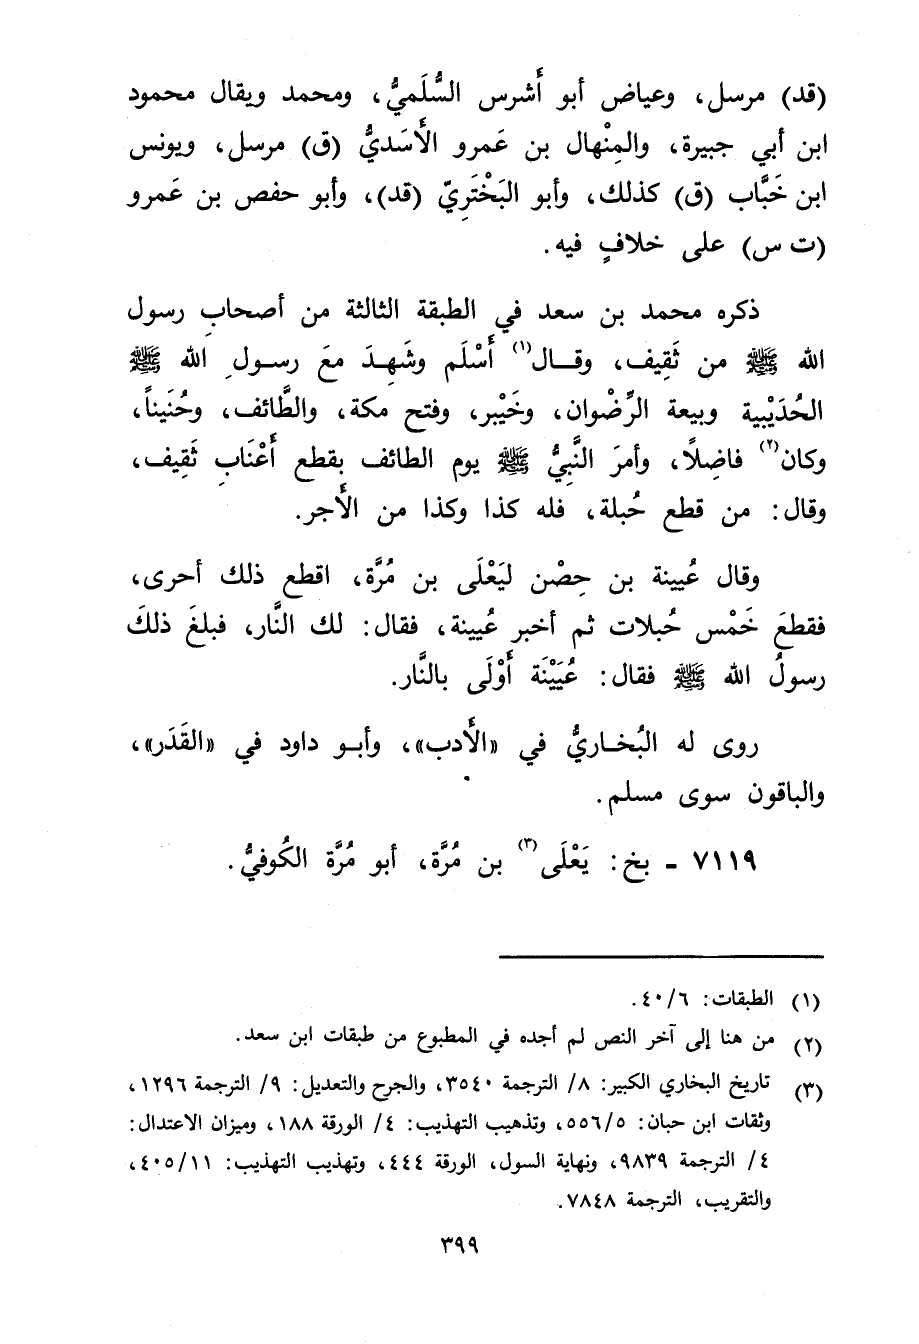 (قد) مرسل، وعياض أبو أَشرس السُّلَميُّ، ومحمد ويقال محمود
ابن أبي جبيرة، والمِنْهال بن عَمرو الأَسَديُّ (ق) مرسل، ويونس
ابن خَبَّاب (ق) كذلك، وأبو البَخْتَرِيّ (قد)، وأبو حفص بن عَمرو
(ت س) على خلافٍ فيه.
ذكره محمد بن سعد في الطبقة الثالثة من أصحابِ رسول
الله ﷺ من ثَقِيف، وقال(١) أَسْلَم وشَهِدَ معَ رسولِ الله ﷺ
الحُدَيْبية وبيعة الرِّضْوان، وخَيْبر، وفتح مكة، والطَّائف، وحُنَيناً،
وكان(٢) فاضِلًا، وأمرَ النَّبِيُّ ﷺ يوم الطائف بقطع أَعْنَابِ ثَقِيف،
وقال: من قطع حُبلة، فله كذا وكذا من الأَجر.
وقال عُيينة بن حِصْن ليَعْلَى بن مُرَّة، اقطع ذلك أحرى،
فقطعَ خَمْس حُبلات ثم أخبر عُيينة، فقال: لك النَّار، فبلغَ ذلكَ
رسولُ الله ﷺ فقال: عُيَيْنَة أَوْلَى بالنَّار.
روى له البُخاريُّ في «الأَدب»، وأبو داود في «القَدَر»،
والباقون سوى مسلم.
٧١١٩ - بخ: يَعْلَى(٣) بن مُرَّة، أبو مُرَّة الكُوفيُّ.
(١) الطبقات: ٤٠/٦.
(٢) من هنا إلى آخر النص لم أجده في المطبوع من طبقات ابن سعد.
(٣) تاريخ البخاري الكبير: ٨/ الترجمة ٣٥٤٠، والجرح والتعديل: ٩/ الترجمة ١٢٩٦،
وثقات ابن حبان: ٥٥٦/٥، وتذهيب التهذيب: ٤/ الورقة ١٨٨، وميزان الاعتدال:
٤/ الترجمة ٩٨٣٩، ونهاية السول، الورقة ٤٤٤، وتهذيب التهذيب: ٤٠٥/١١،
والتقريب، الترجمة ٧٨٤٨.
٣٩٩